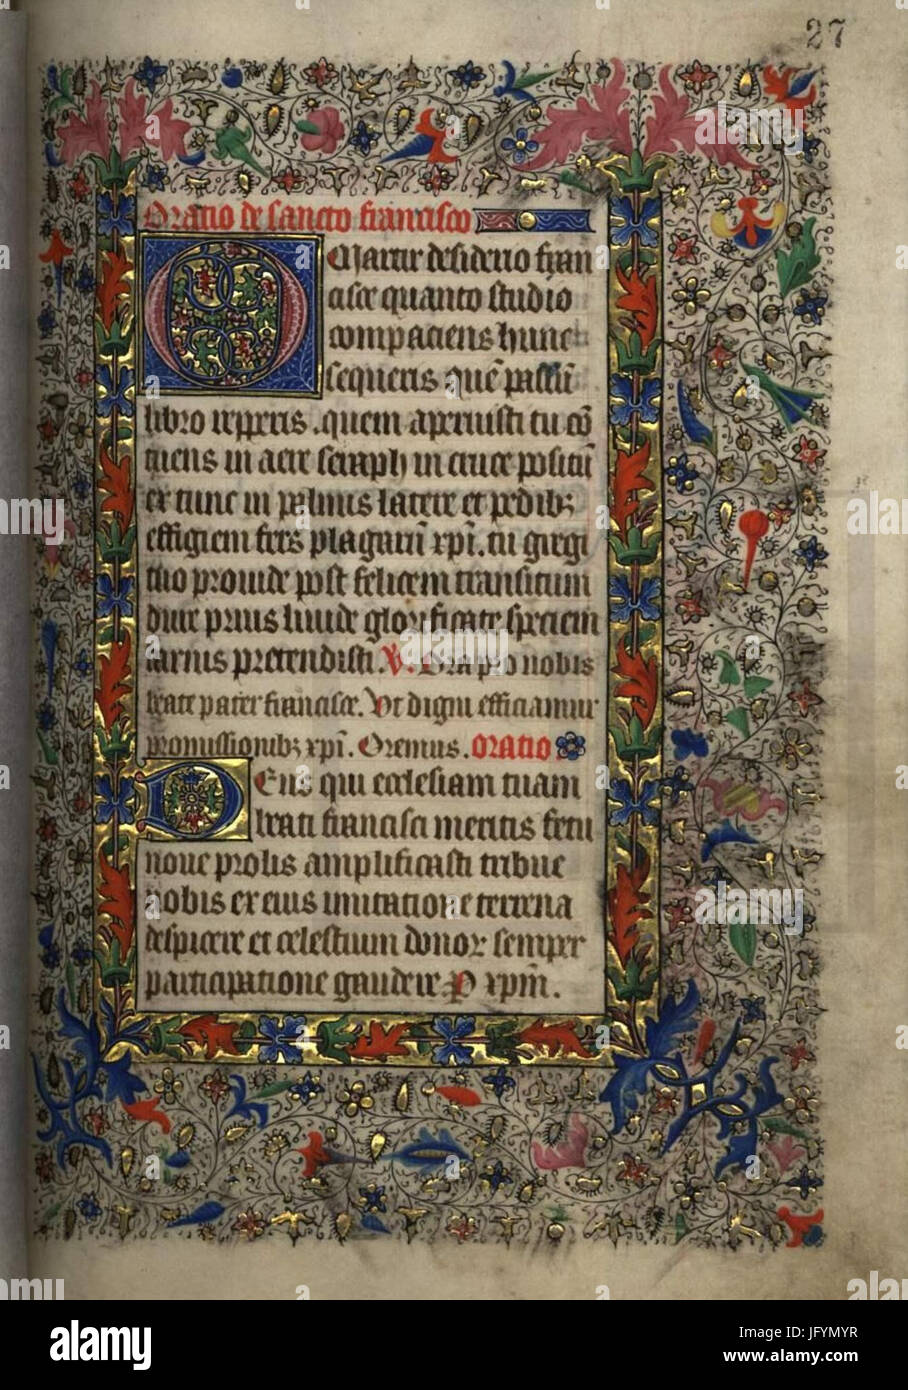 27
Oratio de sancto francisco
O Martir desiderio fran
cisce quanto studio
compaciens hunc
sequeris quē passū
libro repperis .quem aperuisti tu cō
tuens in aere seraph in cruce positū
ex tunc in palmis latere et pedibꝫ
effigiem fers plagarū xpī. tu gregi
tuo prouide post felicem transitum
dire prius liuide glorificate speciem
carnis pretendisti. V. Ora pro nobis
beate pater francisce. Vt digni efficiamur
promissionibꝫ xpī. Oremus. oratio
Deus qui ecclesiam tuam
beati francisci meritis fetu
noue prolis amplificasti tribue
nobis ex eius imitatione terrena
despicere et celestium donoꝝ semper
participatione gaudere. P xpm̄.
alamy stock photo
alamy
JFYMYR
www.alamy.com